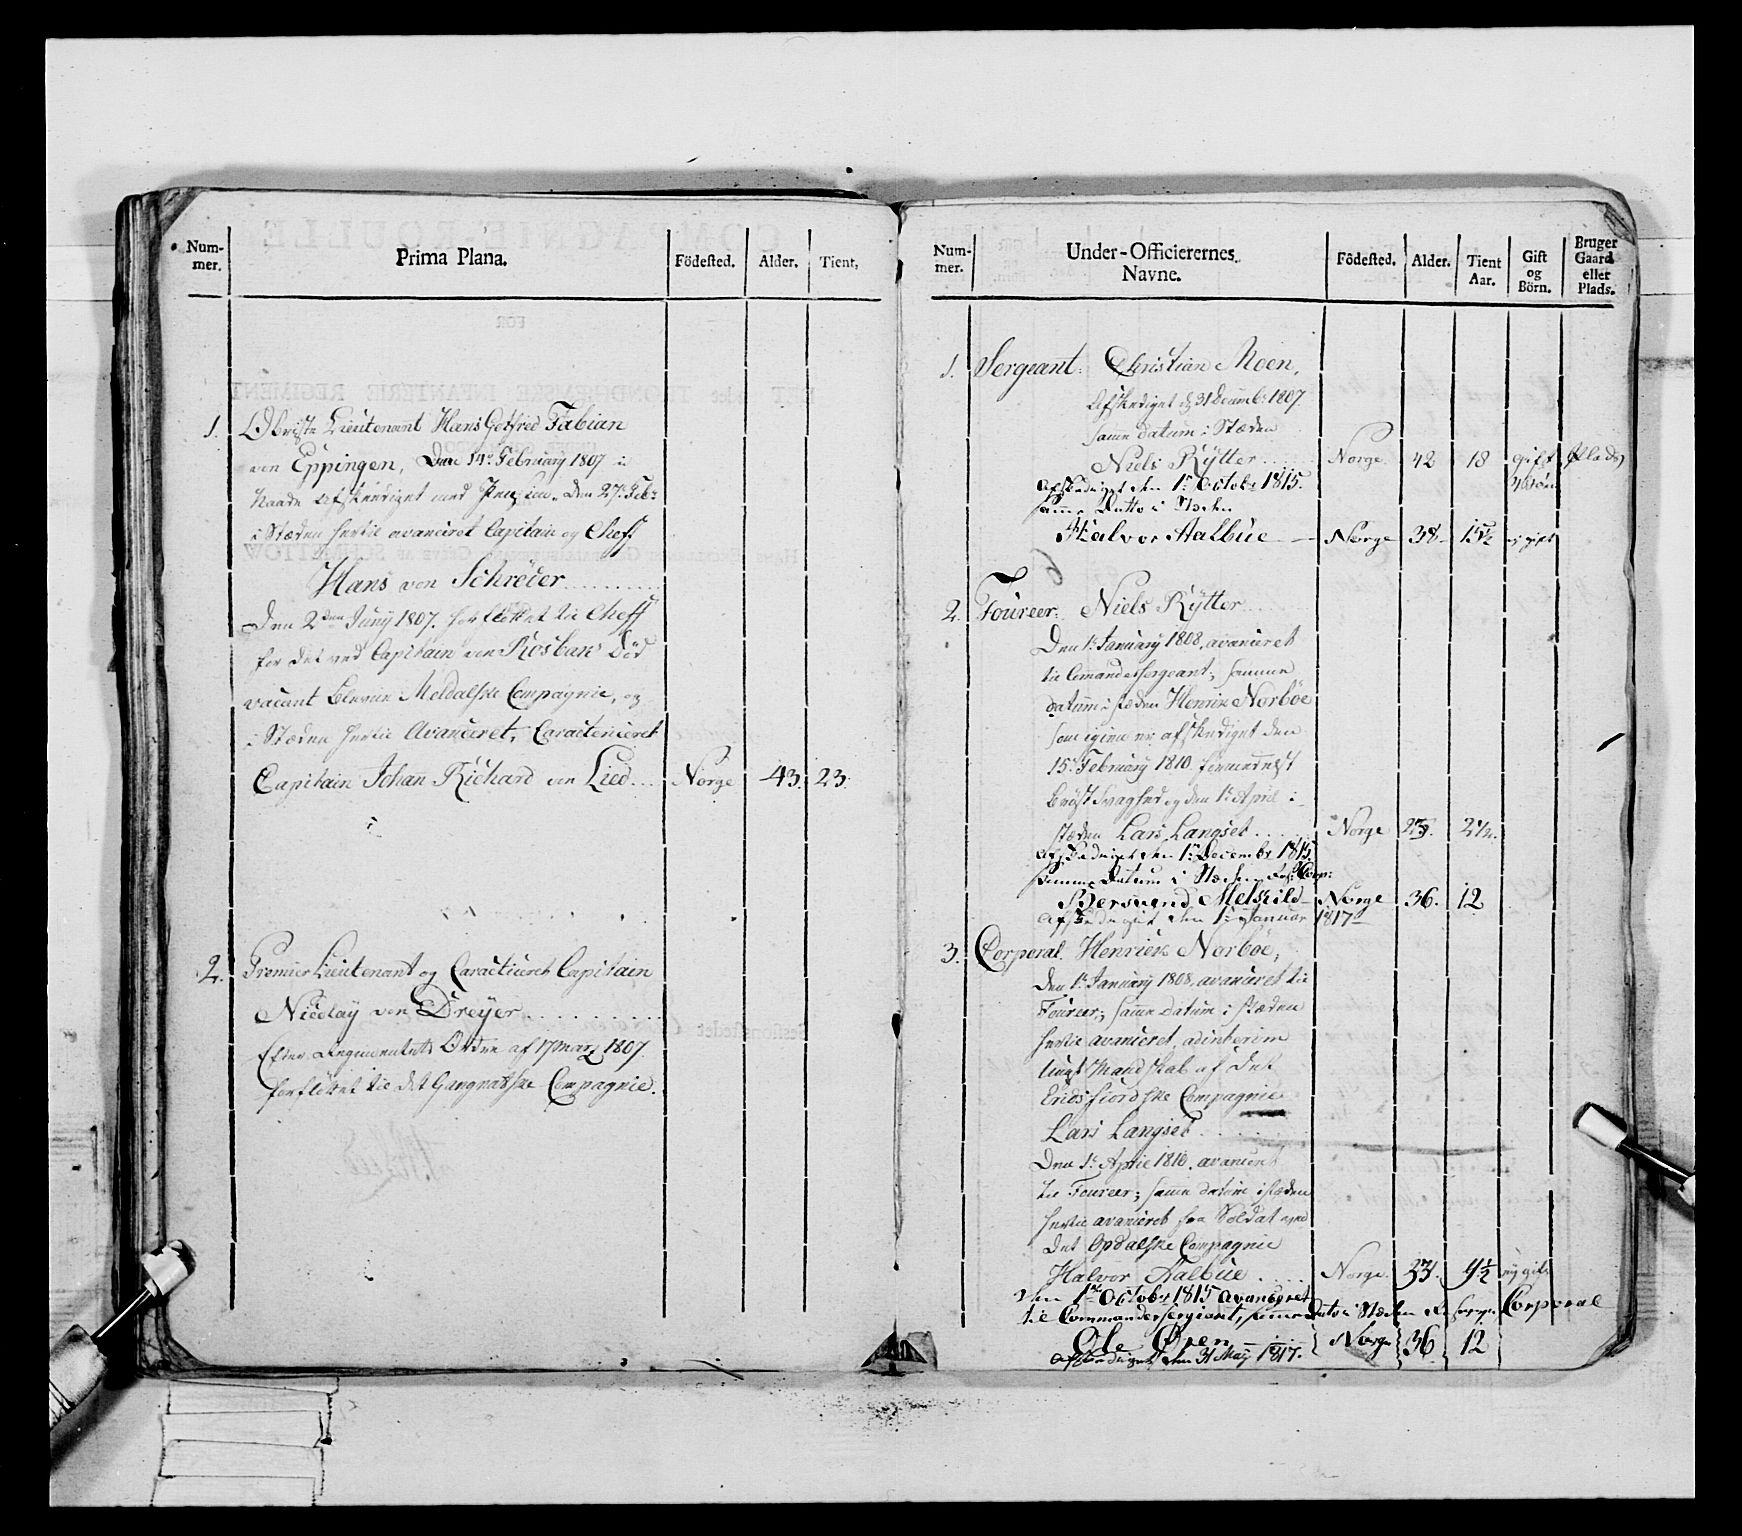 Num-
mer.
Prima Plana.
Födested.
Alder.
Tient.
1.
Obriste Lieutenant Hans Gotfred Fabian
von Eppingen, Den 14de February 1807 i
Naade Afskediget med Pension. Den 27de Febr
i Stæden hertil avanceret Capitain og Chef
Hans von Schrøder
Den 2den Juny 1807. forfløttet til Cheff
for det ved Capitain von Rosbachs Död
vacant blevne Meldalske Compagnie, og
i Stæden hertil Avanceret, Caracteriseret
Capitain Johan Richard von Lied
Norge
43.
23.
2.
Premier Lieutenant og Caracticeret Capitain
Nicolay von Dreyer
Efter Regimentets Ordre af 17 Marz 1807
forflöttet til det Compagnie.
Num-
mer.
Under-Officierernes
Navne.
Födested.
Alder.
Tient
Aar.
Gift
og
Börn.
Bruger
Gaard
eller
Plads.
1.
Sergeant: Christian Moen,
Afskediget d. 31 Decembr 1807.
samme datum i Stæden
Niels Rÿtter
Norge
42
18
gift
Plads
Afskediget den 1ste Octobr 1815.
samme Datto i Stæden
Halvor Aalbue
Norge
38
15½
gift
2.
Foureer: Niels Rÿtter
Den 1te January 1808, avanceret
til Comandersergeant, samme
datum i stæden Henrik Norböe
som igien er afskediget den
15de February 1810 formedelst
Bröst Svaghed og den 1te April i
stæden Lars Langset
Norge
2½.
Afskediget den 1ste Decembr 1815.
Samme Datum i Stæden Corp:
Bersvend Melkild
Norge
36.
12
Afskediget den 1ste Januar 1817
3.
Corporal Henrick Norboe,
Den 1te January 1808, avanceret til
Foureer; samme datum i stæden
hertil avanceret, adinterim
Mandskab af det
Eridsfiordske Compagnie
Lars Langset
Den 1te Aprie 1810, avanceret
til Foureer; samme datum i stæden
hertil avanceret fra Soldat ved
det Opdalske Compagnie
Halvor Aalbue
Norge
33.
9½
gift
den 1ste Octobr 1815 Avanceret
til Commandersergeant, samme Dato i Stæden Corporal
Ole Øren
Norge
36
12
Afskediget den 31 May 1817.